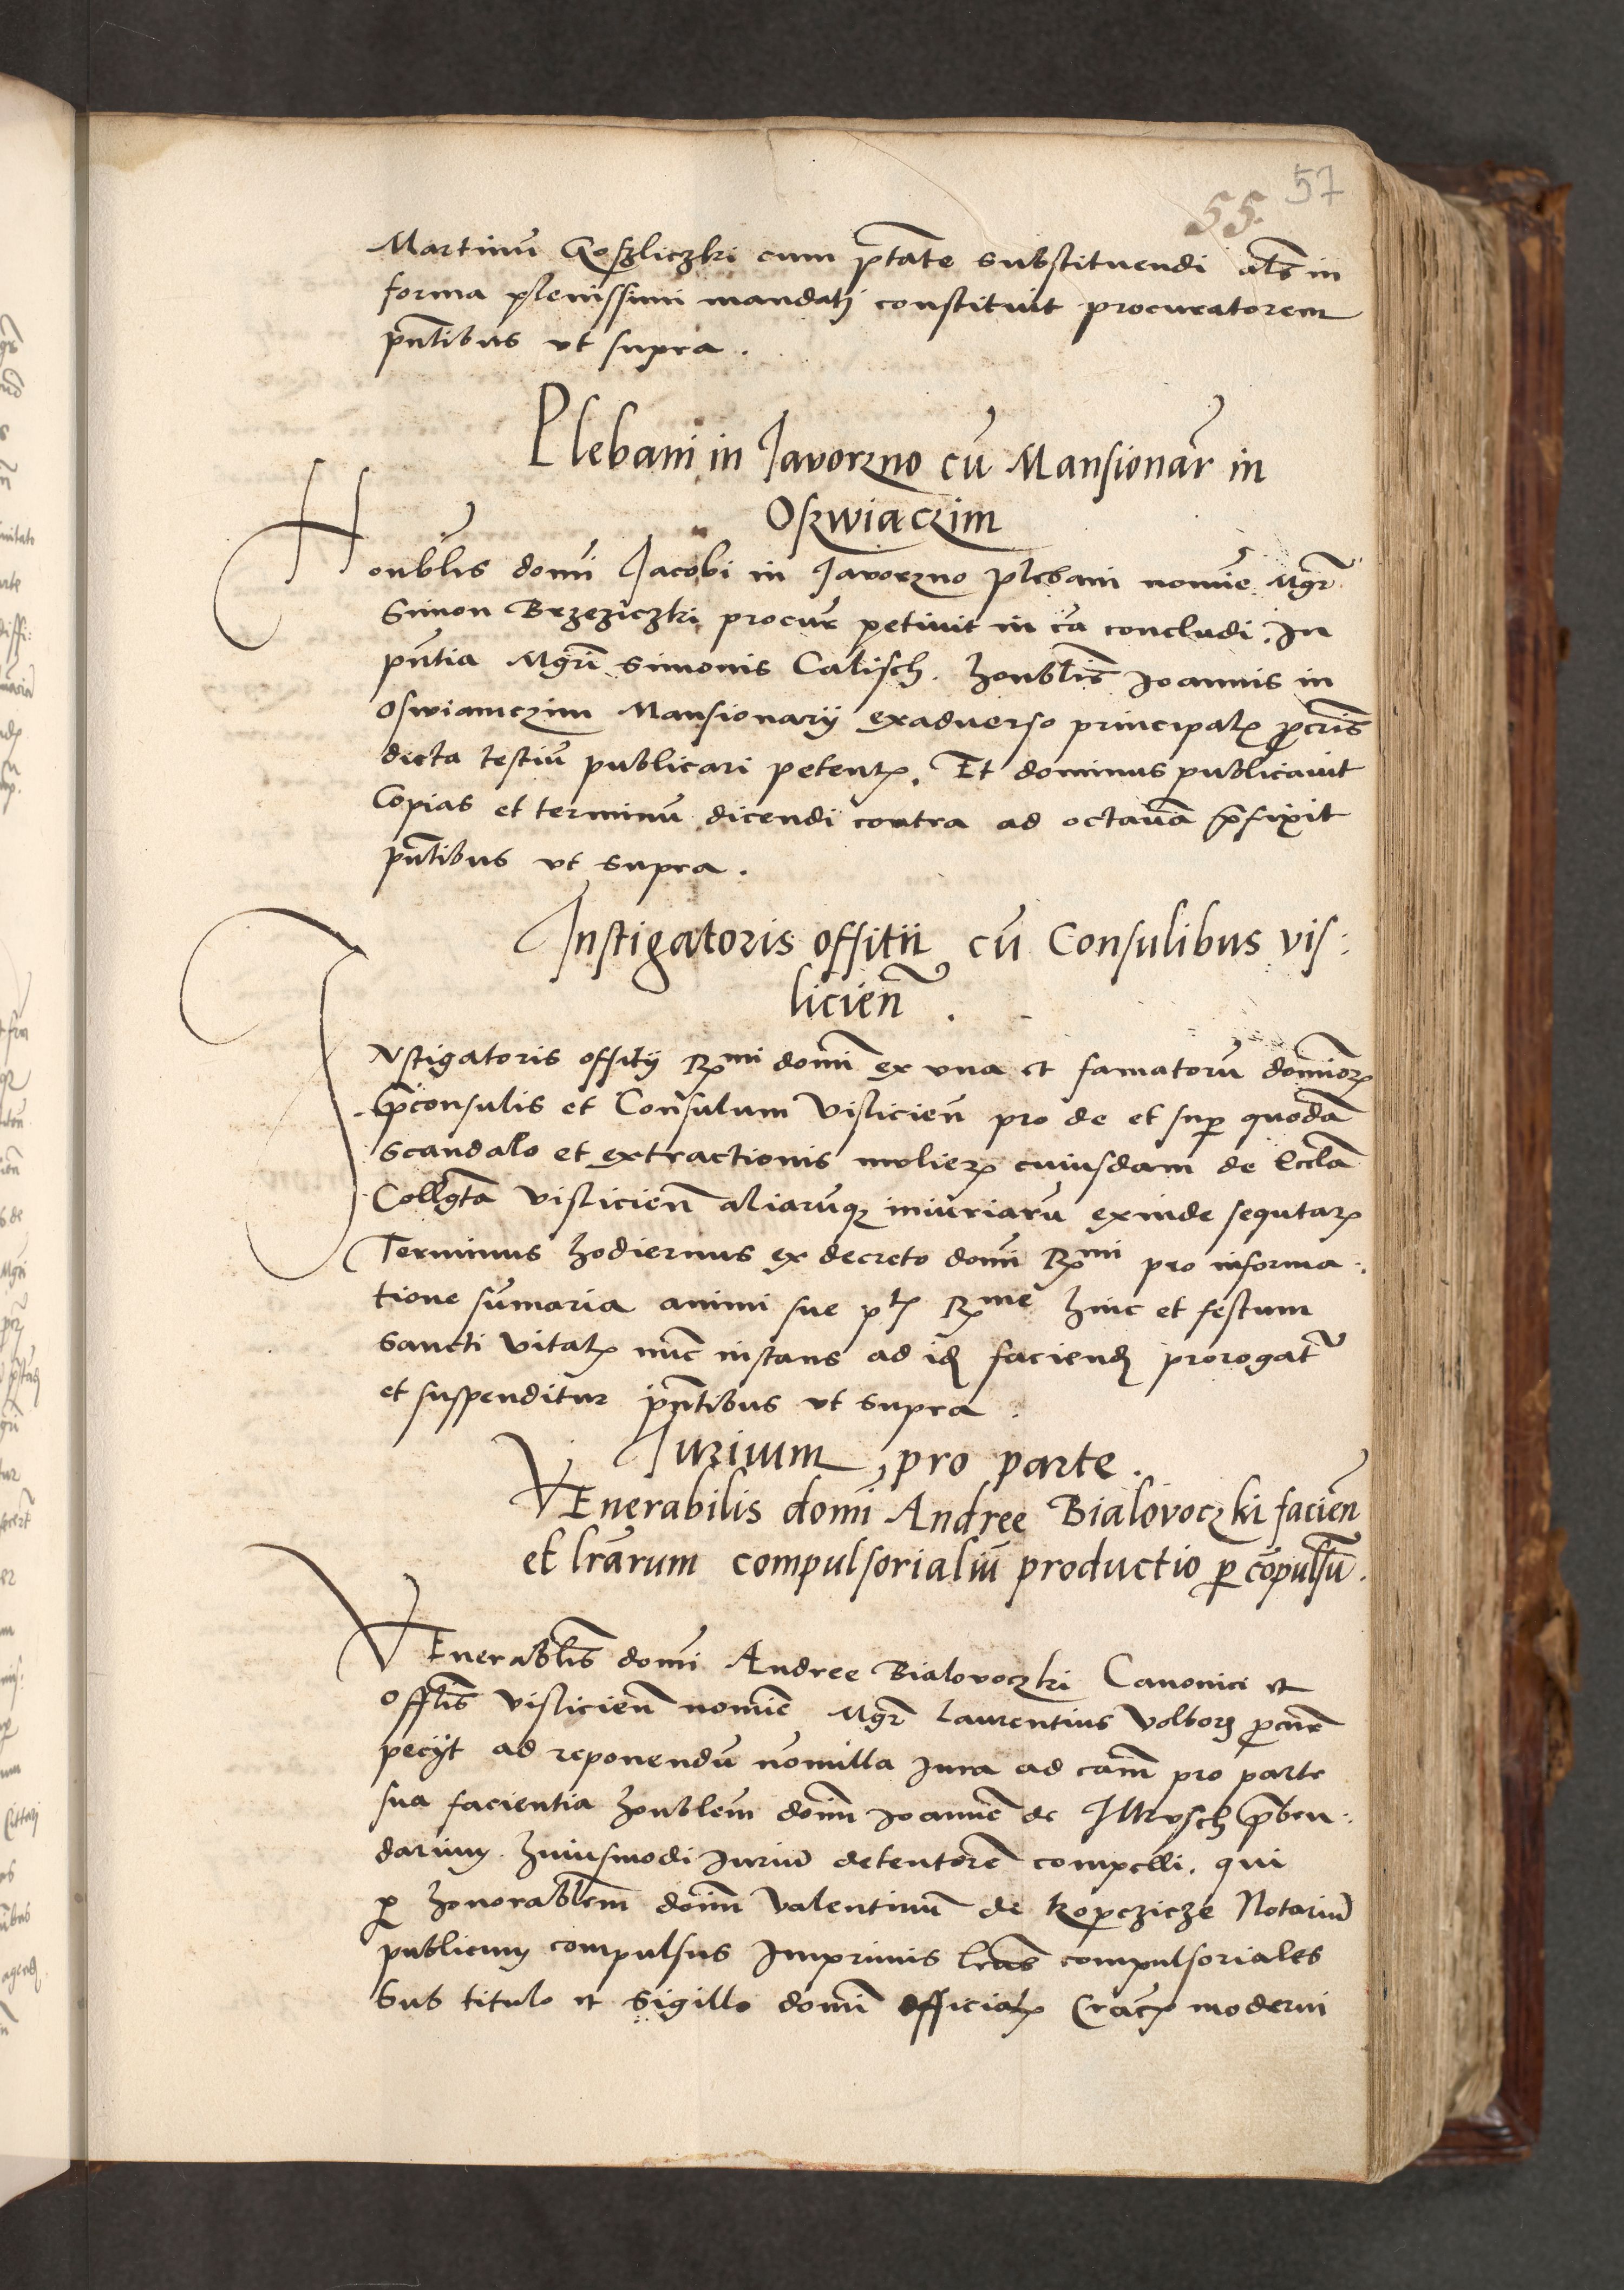 57
55.
Martinū Goszliczki cum ptāte substituendi als in
forma plenissimi mandati constituit procuratorem
pn̄tibus vt supra.
Plebani in Javorzno cū Mansionar̄ in
Oszwiaczim
Honblis domī Jacobi in Javorzno plebani nomīe Mgr̄
Simon Brzeziczki procur̄ petiuit in cā concludi. In
pn̄tia Mgrī Simonis Calisch. honblis Joannis in
Oswiamczim Mansionarij exaduerso principal' procris
dicta testiū publicari peten̄. Et dominus publicauit
Copias et terminū dicendi contra ad octauā p̄fixit
pn̄tibus vt supra.
Instigatoris offitii cū Consulibus vis:
licien̄.
INstigatoris offitij Rmi domī ex vna et famatorū dominor̄
p̄consulis et Consulum Vislicien̄ pro de et sup quodā
scandalo et extractionis mulier̄ cuiusdam de Eccla
Collgta Vislicien̄ aliarūq; iniuriarū exinde sequtar̄
Terminus hodiernus ex decreto domī Rmi pro informa:
tione sūmaria animi sue pt̄ Rme hinc et festum
Sancti Vital' nūc instans ad id faciend prorogat̄
et suspenditur pn̄tibus vt supra.
Jurium, pro parte.
VEnerabilis domī Andree Bialovoczki facien̄
et lrārum compulsorialiū productio p cōpulsū.
VEnerablis domī Andree Bialovoczki Canonici et
Offlis Vislicien̄ nomīe Mgr̄ Laurentius Volborz pcur̄
pecijt ad reponendū nonnulla Jura ad cām pro parte
sua facientia honblem domn Joannē de p̄ben:
darium huiusmodi Juriū detentorē compelli. qui
p honorablem domn Valentinū de Kopczicze Notariū
publicum compulsus Imprimis lrās compulsoriales
Sub titulo et Sigillo domī Official' Crac̄ moderni